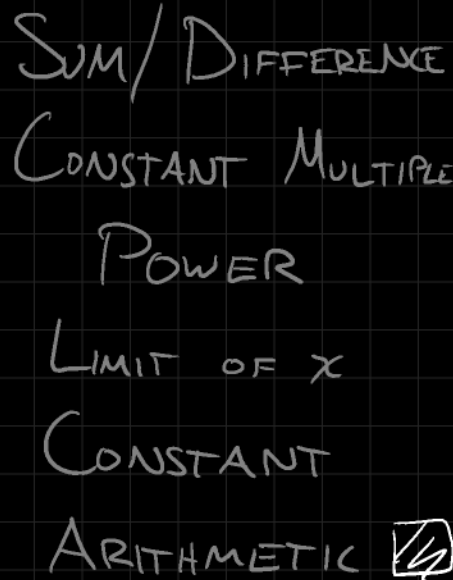 SUM/DIFFERENCE
CONSTANT MULTIPLE
POWER
LIMIT OF x
CONSTANT
ARITHMETIC